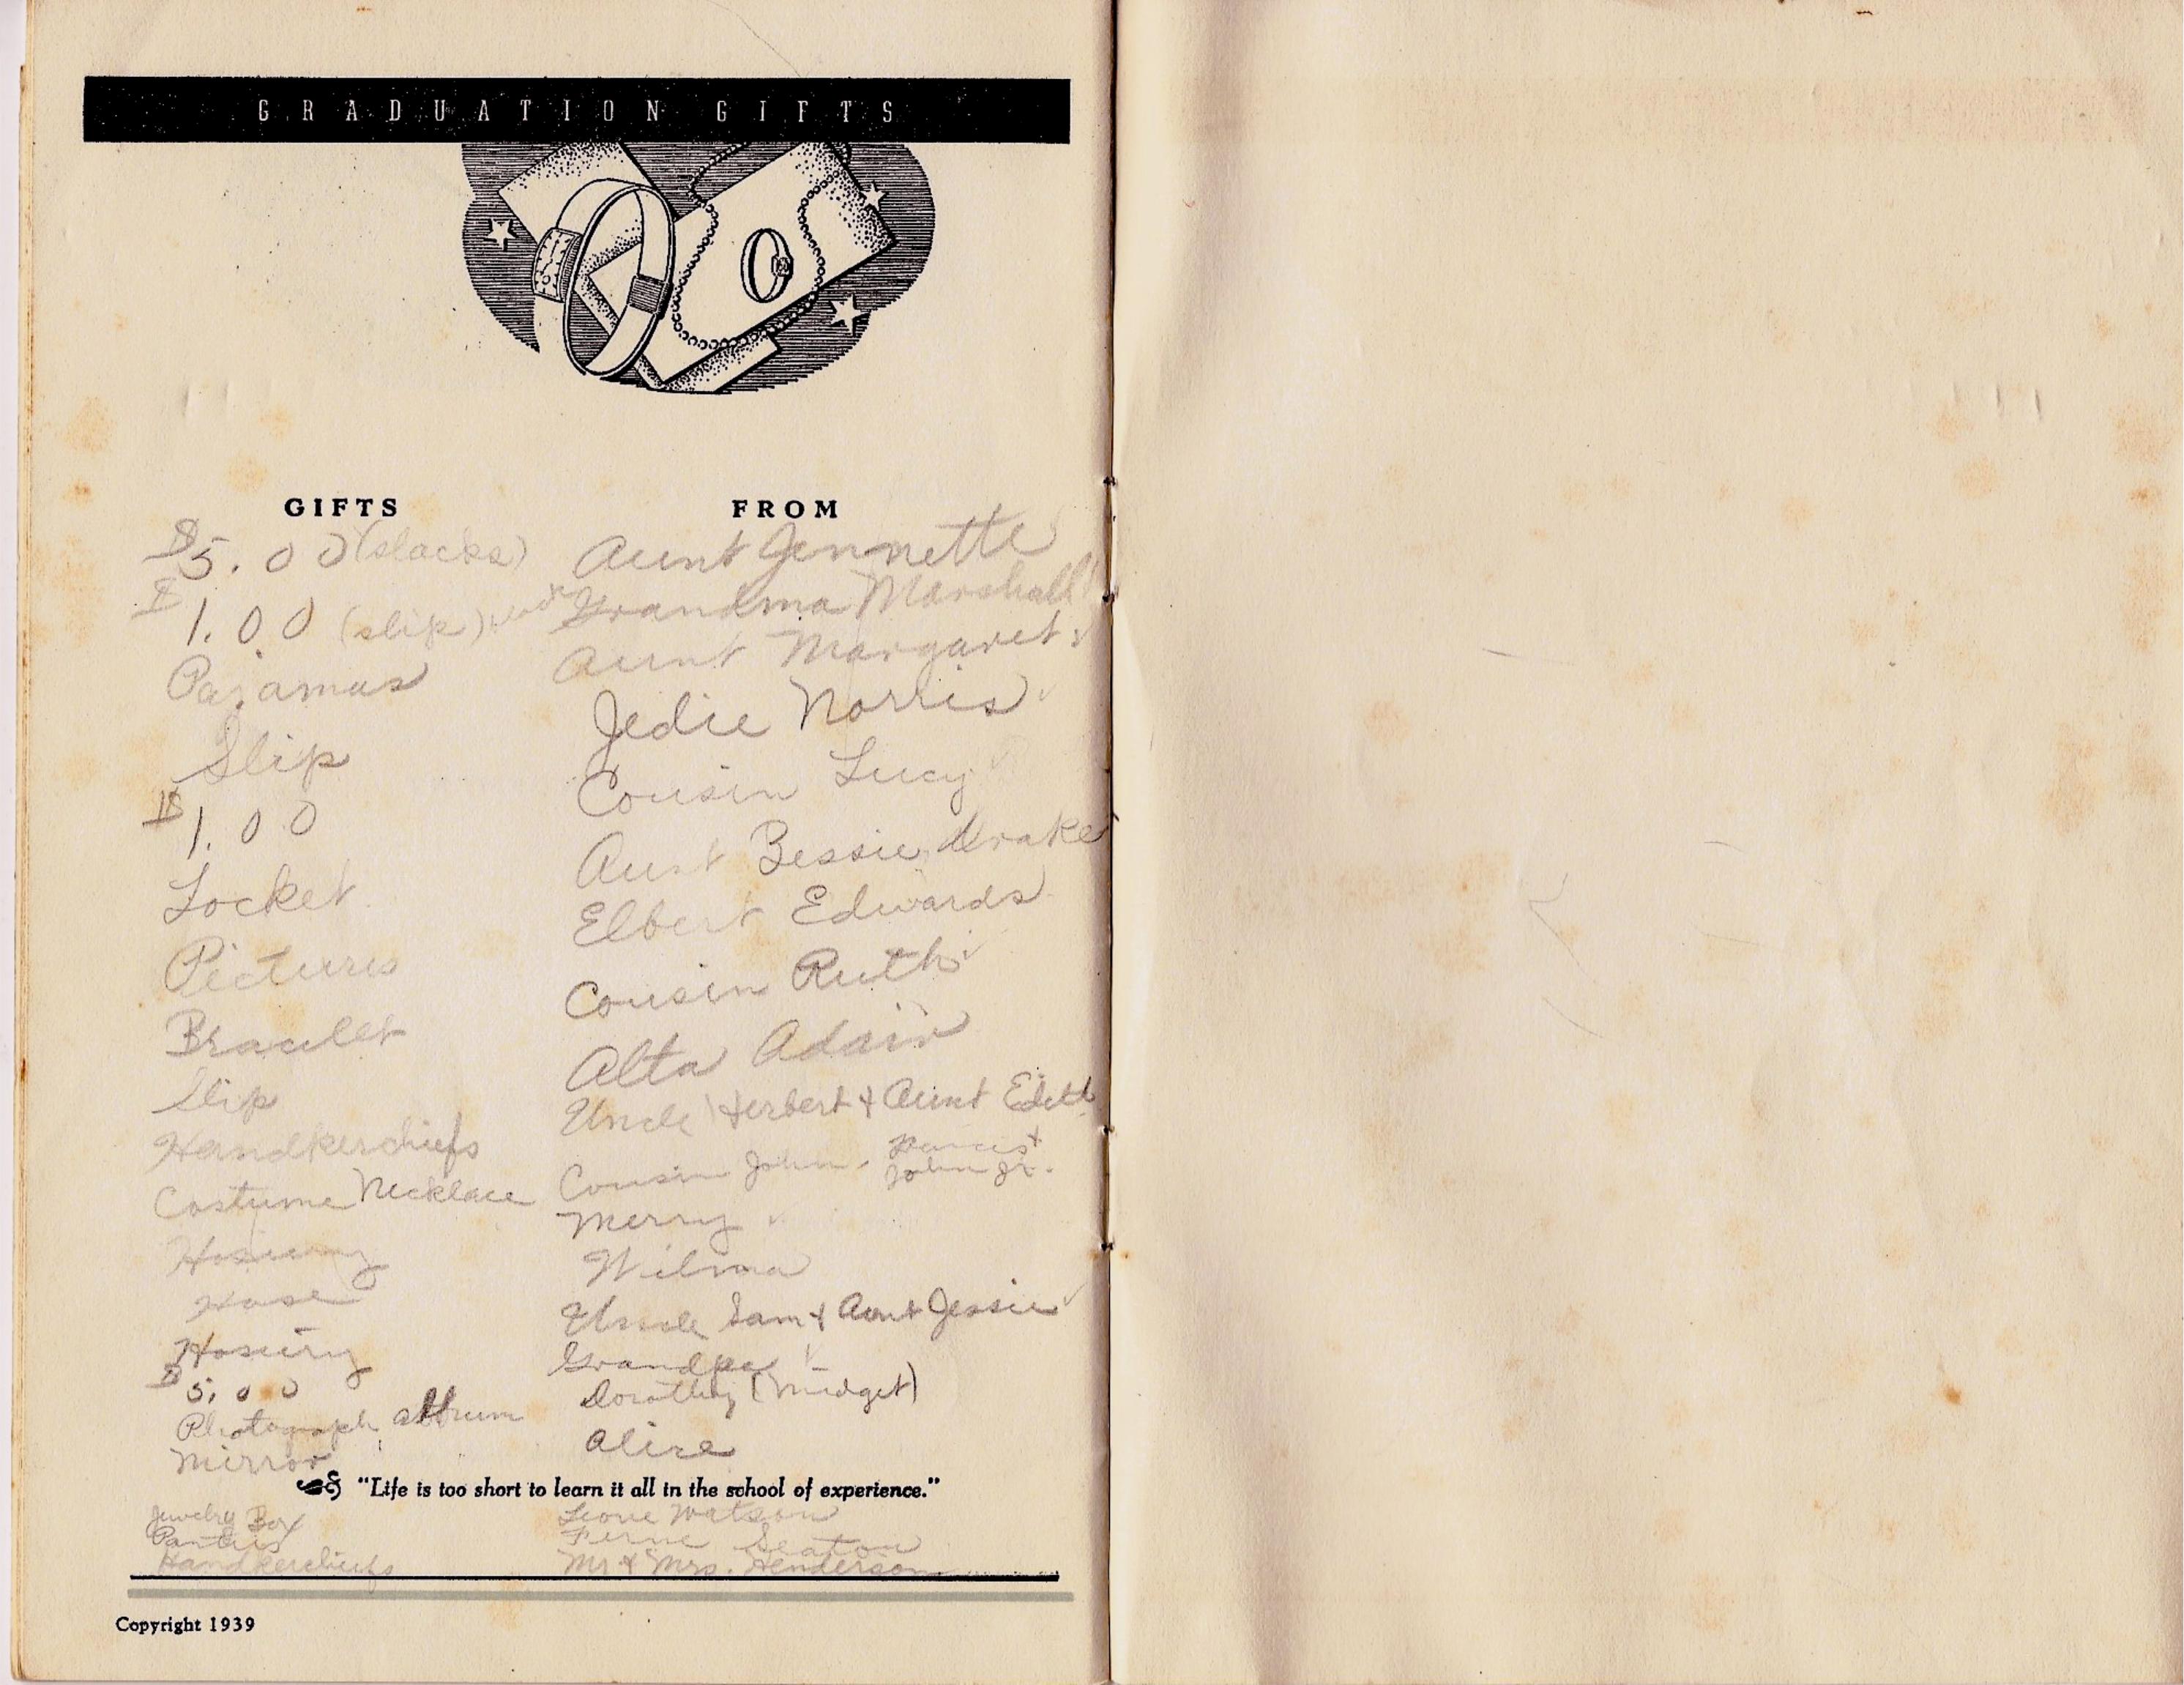 GRADUATION GIFTS
GIFTS FROM
$5.00 (slacks) Aunt Jennette
$1.00 (slip) Grandma Marshall
Pajamas Aunt Margaret
Slip Jedie Norris
$1.00 Cousin Lucy
Locket Aunt Bessie Drake
Pictures Elbert Edwards
Bracelet Cousin Ruth
Slip Alta Adair
Handkerchiefs Uncle Herbert & Aunt Edith
Costume Necklace Cousin John, Frances & John Jr.
Hosiery Merry
Hose Wilma
Hosiery Uncle Sam & Aunt Jessie
$5.00 Grandpa
Photograph album Dorothy (Midget)
Mirror Alice
"Life is too short to learn it all in the school of experience."
Jewelry Box Leone Watson
Panties Ferne Seaton
Handkerchiefs Mr & Mrs. Henderson
Copyright 1939